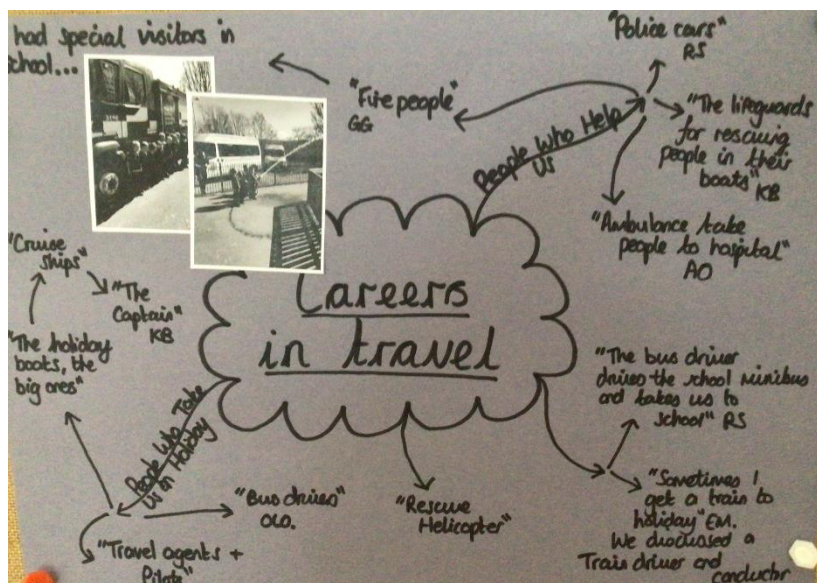 had special visitors in
school...
"Fire people"
GG
People Who Help
Us
"Police cars"
RS
"The lifeguards
for rescuing
people in their
boats"
KB
"Ambulance take
people to hospital"
AO
Careers
in travel
"Cruise
ships"
"The
Captain"
KB
"The holiday
boats, the
big ones"
People Who Take
Us on Holiday
"Bus driver"
OLO.
"Travel agents +
Pilots"
"Rescue
Helicopter"
"The bus driver
drives the school minibus
and takes us to
school" RS
"Sometimes I
get a train to
holiday" EM.
We discussed a
Train driver and
conductor